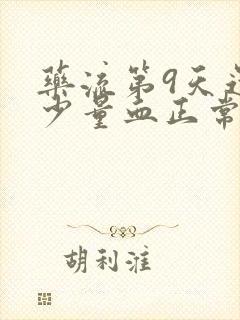 药流第9天还
少量血正常
胡利淮